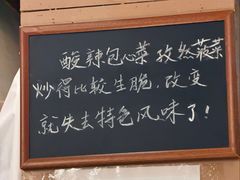 酸辣包心菜 孜然菠菜
炒得比较生脆,改变
就失去特色风味了!